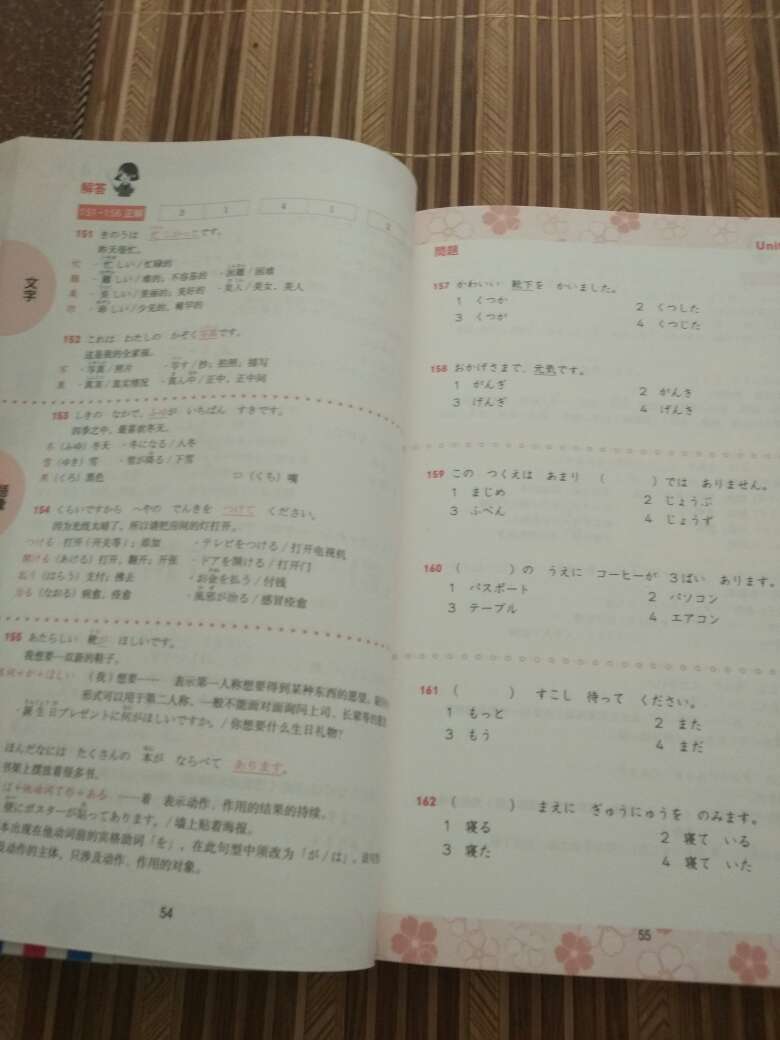 解答
151~156 正解
3 1 4 1
151 きのうは 忙しかったです。
昨天很忙。
忙 ・忙しい/忙碌的
難 ・難しい/难的;不容易的 ・困難/困难
美 ・美しい/美丽的;美好的 ・美人/美女,美人
152 これは わたしの かぞく写真です。
这是我的全家福。
写 ・写真/照片 ・写す/抄;拍照;描写
真 ・真実/真实情况 ・真ん中/正中,正中间
153 しきの なかで、ふゆが いちばん すきです。
四季之中,最喜欢冬天。
冬(ふゆ)冬天 ・冬になる/入冬
雪(ゆき)雪 ・雪が降る/下雪
黒(くろ)黑色 口(くち)嘴
154 くらいですから へやの でんきを つけて ください。
因为光线太暗了,所以请把房间的灯打开。
つける 打开(开关等);添加 ・テレビをつける/打开电视机
開ける(あける)打开,翻开;开张 ・ドアを開ける/打开门
払う(はらう)支付;拂去 ・お金を払う/付钱
治る(なおる)病愈,痊愈 ・風邪が治る/感冒痊愈
155 あたらしい 靴が ほしいです。
我想要一双新的鞋子。
名词+が+ほしい (我)想要…… 表示第一人称想要得到某种东西的愿望,
形式可以用于第二人称,一般不能面对面询问上司、长辈等的
・誕生日プレゼントに何がほしいですか。/你想要什么生日礼物?
ほんだなには たくさんの 本が ならべて あります。
书架上摆放着很多书。
は+他动词て形+ある ……着 表示动作、作用的结果的持续。
壁にポスターが貼ってあります。/墙上贴着海报。
本出现在他动词前的宾格助词「を」,在此句型中须改为「が/は」。
及动作的主体,只涉及动作、作用的对象。
54
文字
問題
Unit
157 かわいい 靴下を かいました。
1 くつか 2 くつした
3 くつが 4 くつじた
158 おかげさまで、元気です。
1 がんぎ 2 がんき
3 げんぎ 4 げんき
159 この つくえは あまり ( )では ありません。
1 まじめ 2 じょうぶ
3 ふべん 4 じょうず
160 ( )の うえに コーヒーが 3ばい あります。
1 パスポート 2 パソコン
3 テーブル 4 エアコン
161 ( ) すこし 待って ください。
1 もっと 2 また
3 もう 4 まだ
162 ( ) まえに ぎゅうにゅうを のみます。
1 寝る 2 寝て いる
3 寝た 4 寝て いた
55